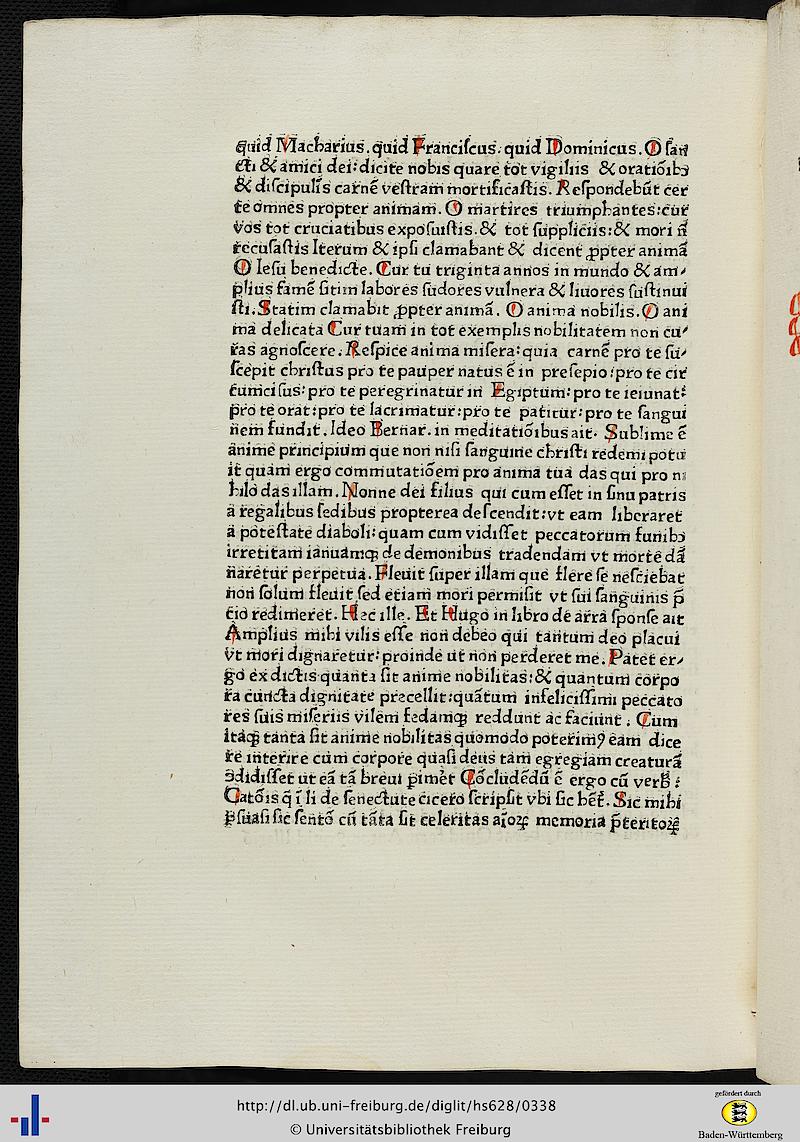 quid Macharius. quid Franciſcus. quid Dominicus. O ſan
cti & amici dei: dicite nobis quare tot vigiliis & oratiōibꝫ
& diſcipulis carnē veſtram mortificaſtis. Reſpondebūt cer
te omnes propter animam. O martires triumphantes: cur
vos tot cruciatibus expoſuiſtis. & tot ſuppliciis: & mori nō
recuſaſtis Iterum & ipſi clamabant & dicent ꝓpter animā
O Ieſu benedicte. Cur tu triginta annos in mundo & am⸗
plius famē ſitim labores ſudores vulnera & liuores ſuſtinui
ſti. Statim clamabit ꝓpter animā. O anima nobilis. O ani
ma delicata Cur tuam in tot exemplis nobilitatem non cu⸗
ras agnoſcere. Reſpice anima miſera: quia carnē pro te ſu⸗
ſcepit chriſtus pro te pauper natus ē in preſepio: pro te cir
cumciſus: pro te peregrinatur in Egiptum: pro te ieiunat:
pro te orat: pro te lacrimatur: pro te patitur: pro te ſangui
nem fundit. Ideo Bernar. in meditatiōibus ait. Sublime ē
anime principium que non niſi ſanguine chriſti redemi potu
it quam ergo commutatiōem pro anima tua das qui pro ni
hilo das illam. Nonne dei filius qui cum eſſet in ſinu patris
a regalibus ſedibus propterea deſcendit: vt eam liberaret
a poteſtate diaboli: quam cum vidiſſet peccatorum funibꝫ
irretitam ianuamqꝫ de demonibus tradendam vt morte dā
naretur perpetua. Fleuit ſuper illam que flere ſe neſciebat
non ſolum fleuit ſed etiam mori permiſit vt ſui ſanguinis p̄
cio redimeret. Hec ille. Et Hugo in libro de arra ſponſe ait
Amplius mihi vilis eſſe non debeo qui tantum deo placui
vt mori dignaretur: proinde ut non perderet me. Patet er⸗
go ex dictis quanta ſit anime nobilitas: & quantum corpo
ra cuncta dignitate precellit: quātum infeliciſſimi peccato
res ſuis miſeriis vilem fedamqꝫ reddunt ac faciunt. Cum
itaqꝫ tanta ſit anime nobilitas quomodo poterimꝰ eam dice
re interire cum corpore quaſi deus tam egregiam creaturā
ꝯdidiſſet ut eā tā breui pimēt Cōcludēdū ē ergo cū verb̄:
Catōis q̄ ī li de ſenectute cicero ſcripſit vbi ſic het̄. Sic mihi
ꝑſuaſi ſic ſentō cū tāta ſit celeritas aīoꝝ memoria p̄teritoꝝ
http://dl.ub.uni-freiburg.de/diglit/hs628/0338
© Universitätsbibliothek Freiburg
gefördert durch
Baden-Württemberg